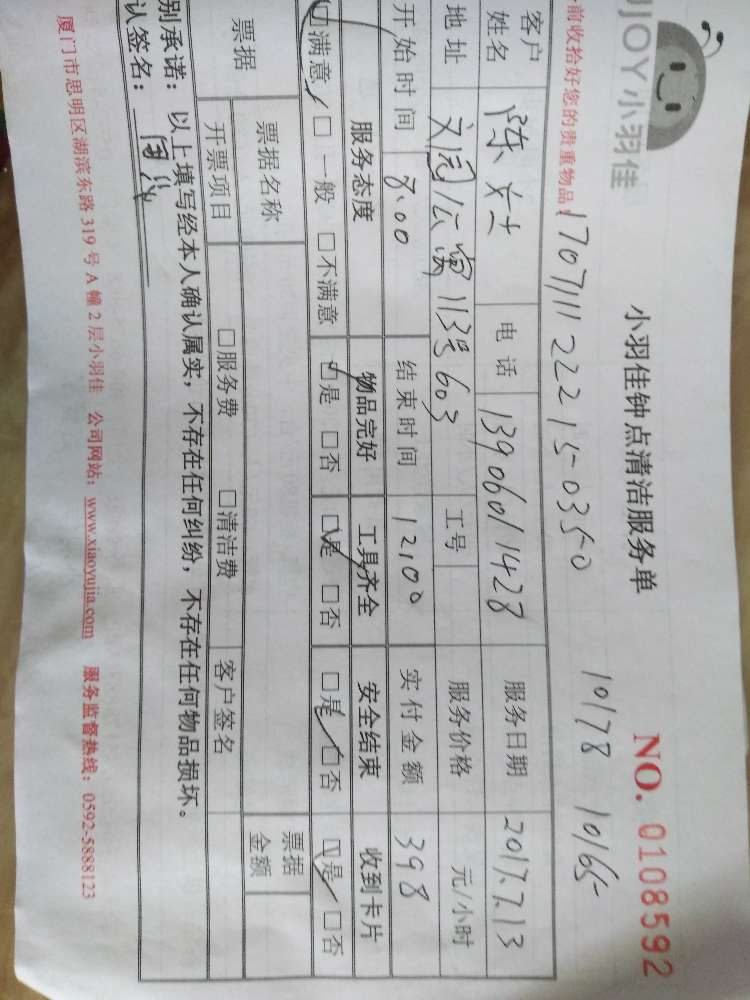 UJOY小羽佳
小羽佳钟点清洁服务单
NO. 0108592
前收拾好您的贵重物品
1707111222150350
10178 10165
客户姓名 陈女士 电话 13906011428 服务日期 2017.7.13
地址 文园公寓113号603 工号 服务价格 元/小时
开始时间 8:00 结束时间 12:00 实付金额 398
服务态度 物品完好 工具齐全 安全结束 收到卡片
□满意 □一般 □不满意 □是 □否 □是 □否 □是 □否 □是 □否
票据 票据名称 票据金额
开票项目 □服务费 □清洁费 客户签名
别承诺：以上填写经本人确认属实，不存在任何纠纷，不存在任何物品损坏。
认签名：
厦门市思明区湖滨东路319号A幢2层小羽佳 公司网站：www.xiaoyujia.com 服务监督热线：0592-5888123